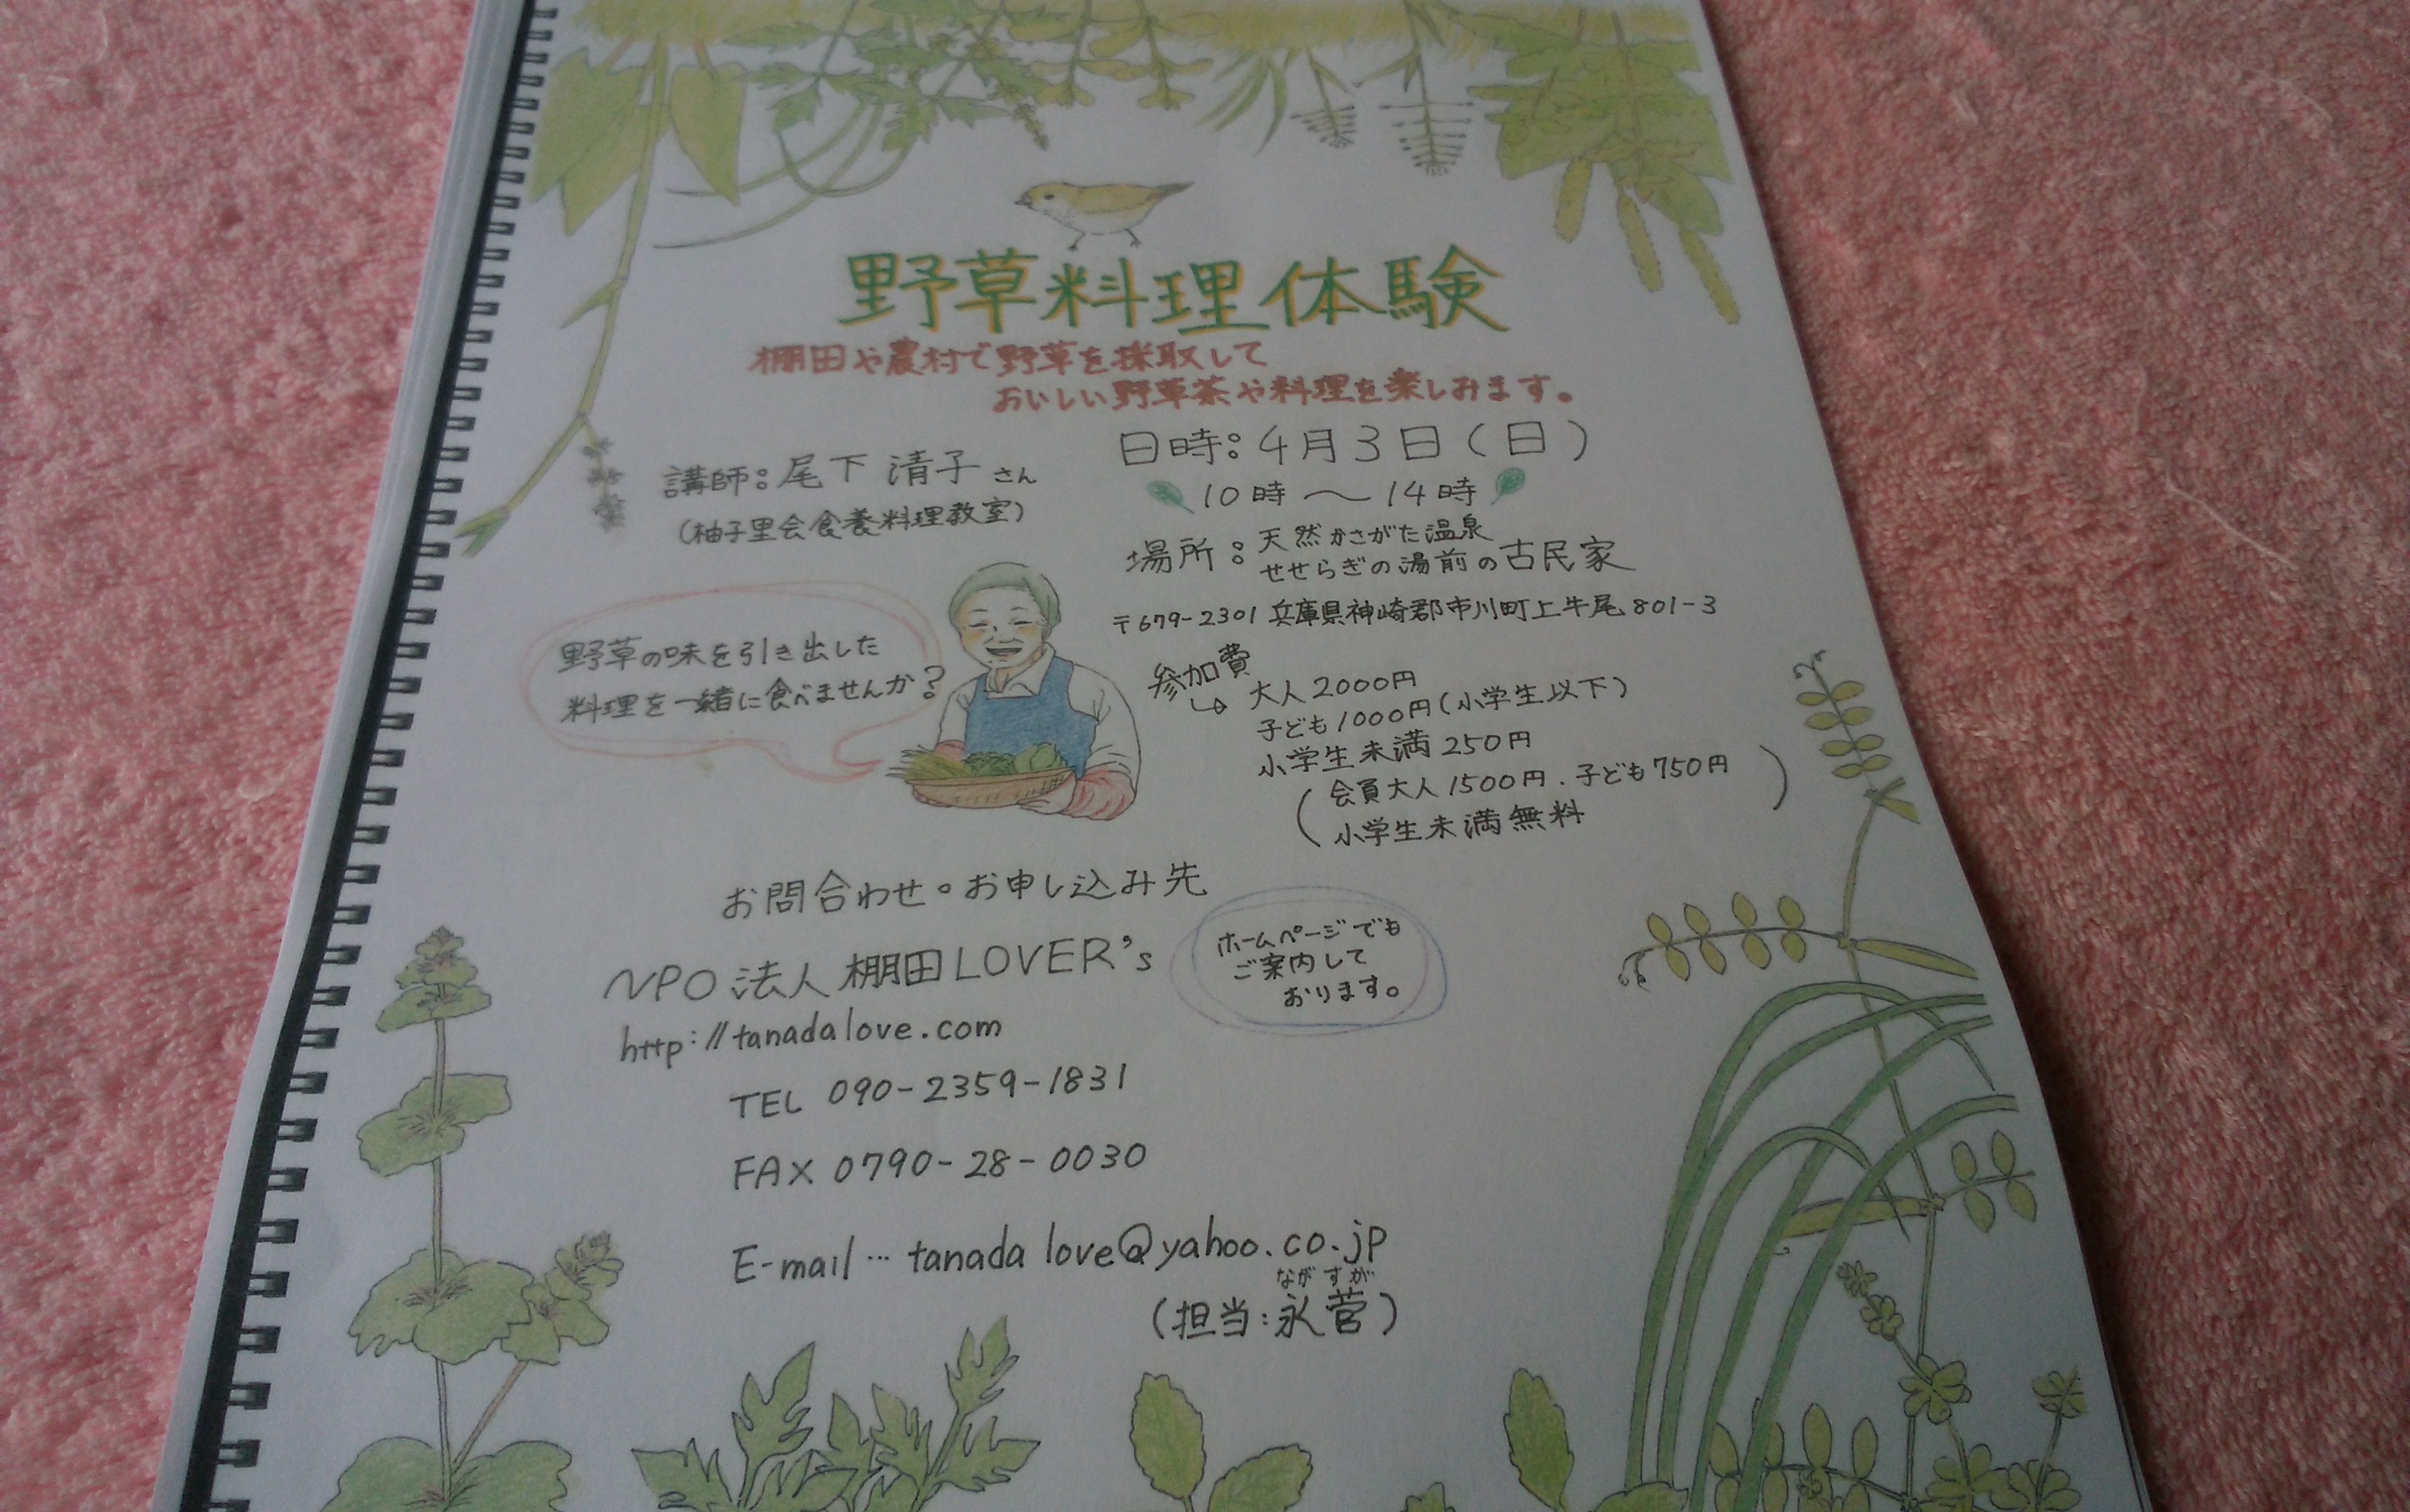 野草料理体験
棚田や農村で野草を採取して
おいしい野草茶や料理を楽しみます。
講師:尾下 清子さん
(柚子里会食養料理教室)
日時:4月3日(日)
10時〜14時
場所:天然かさがた温泉
せせらぎの湯前の古民家
〒679-2301 兵庫県神崎郡市川町上牛尾801-3
野草の味を引き出した
料理を一緒に食べませんか?
参加費
↳大人2000円
子ども1000円(小学生以下)
小学生未満250円
(会員大人1500円.子ども750円
小学生未満無料)
お問合わせ。お申し込み先
NPO法人棚田LOVER's
ホームページでも
ご案内して
おります。
http://tanadalove.com
TEL 090-2359-1831
FAX 0790-28-0030
E-mail… tanadalove@yahoo.co.jp
ながすが
(担当:永菅)